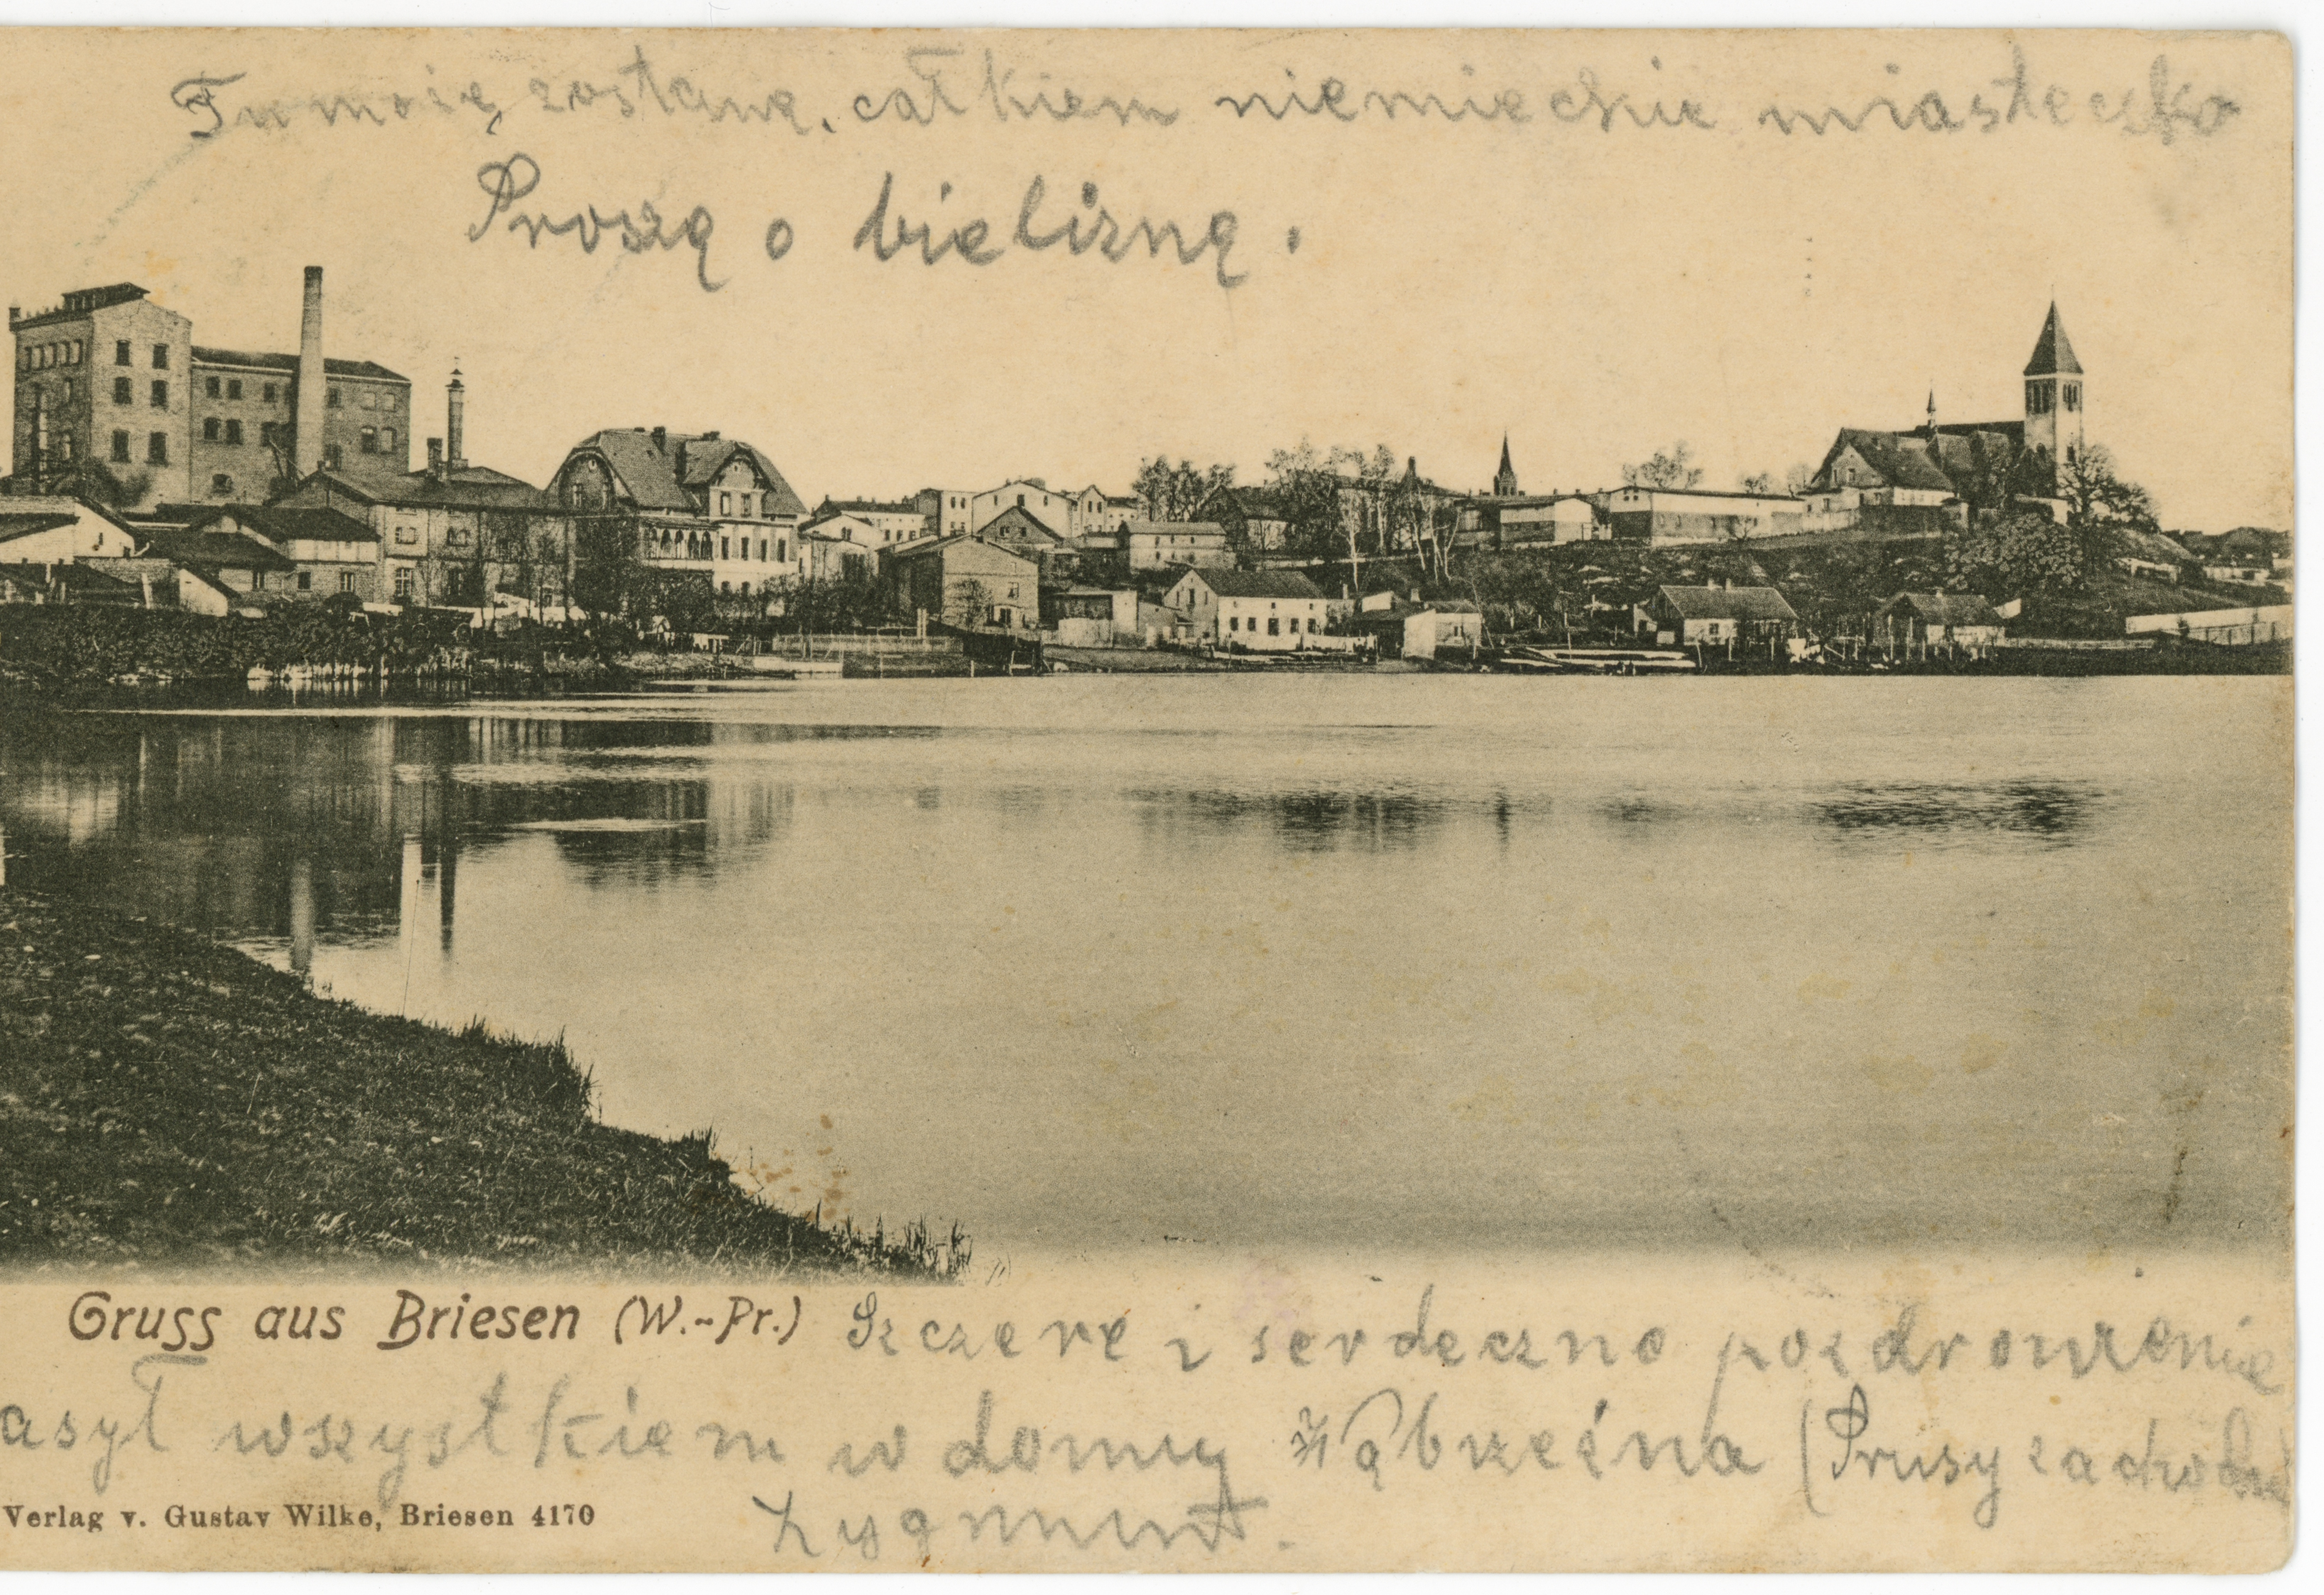 Tu mo się zostanę, całkiem niemieckie miasteczko
Proszę o bieliznę.
Gruss aus Briesen (W.-Pr.) Szczere i serdeczne pozdrowienie
asył wszystkiem w domu z Wąbrzeźna (Prusy zachodnie
Verlag v. Gustav Wilke, Briesen 4170
Zygmunt.